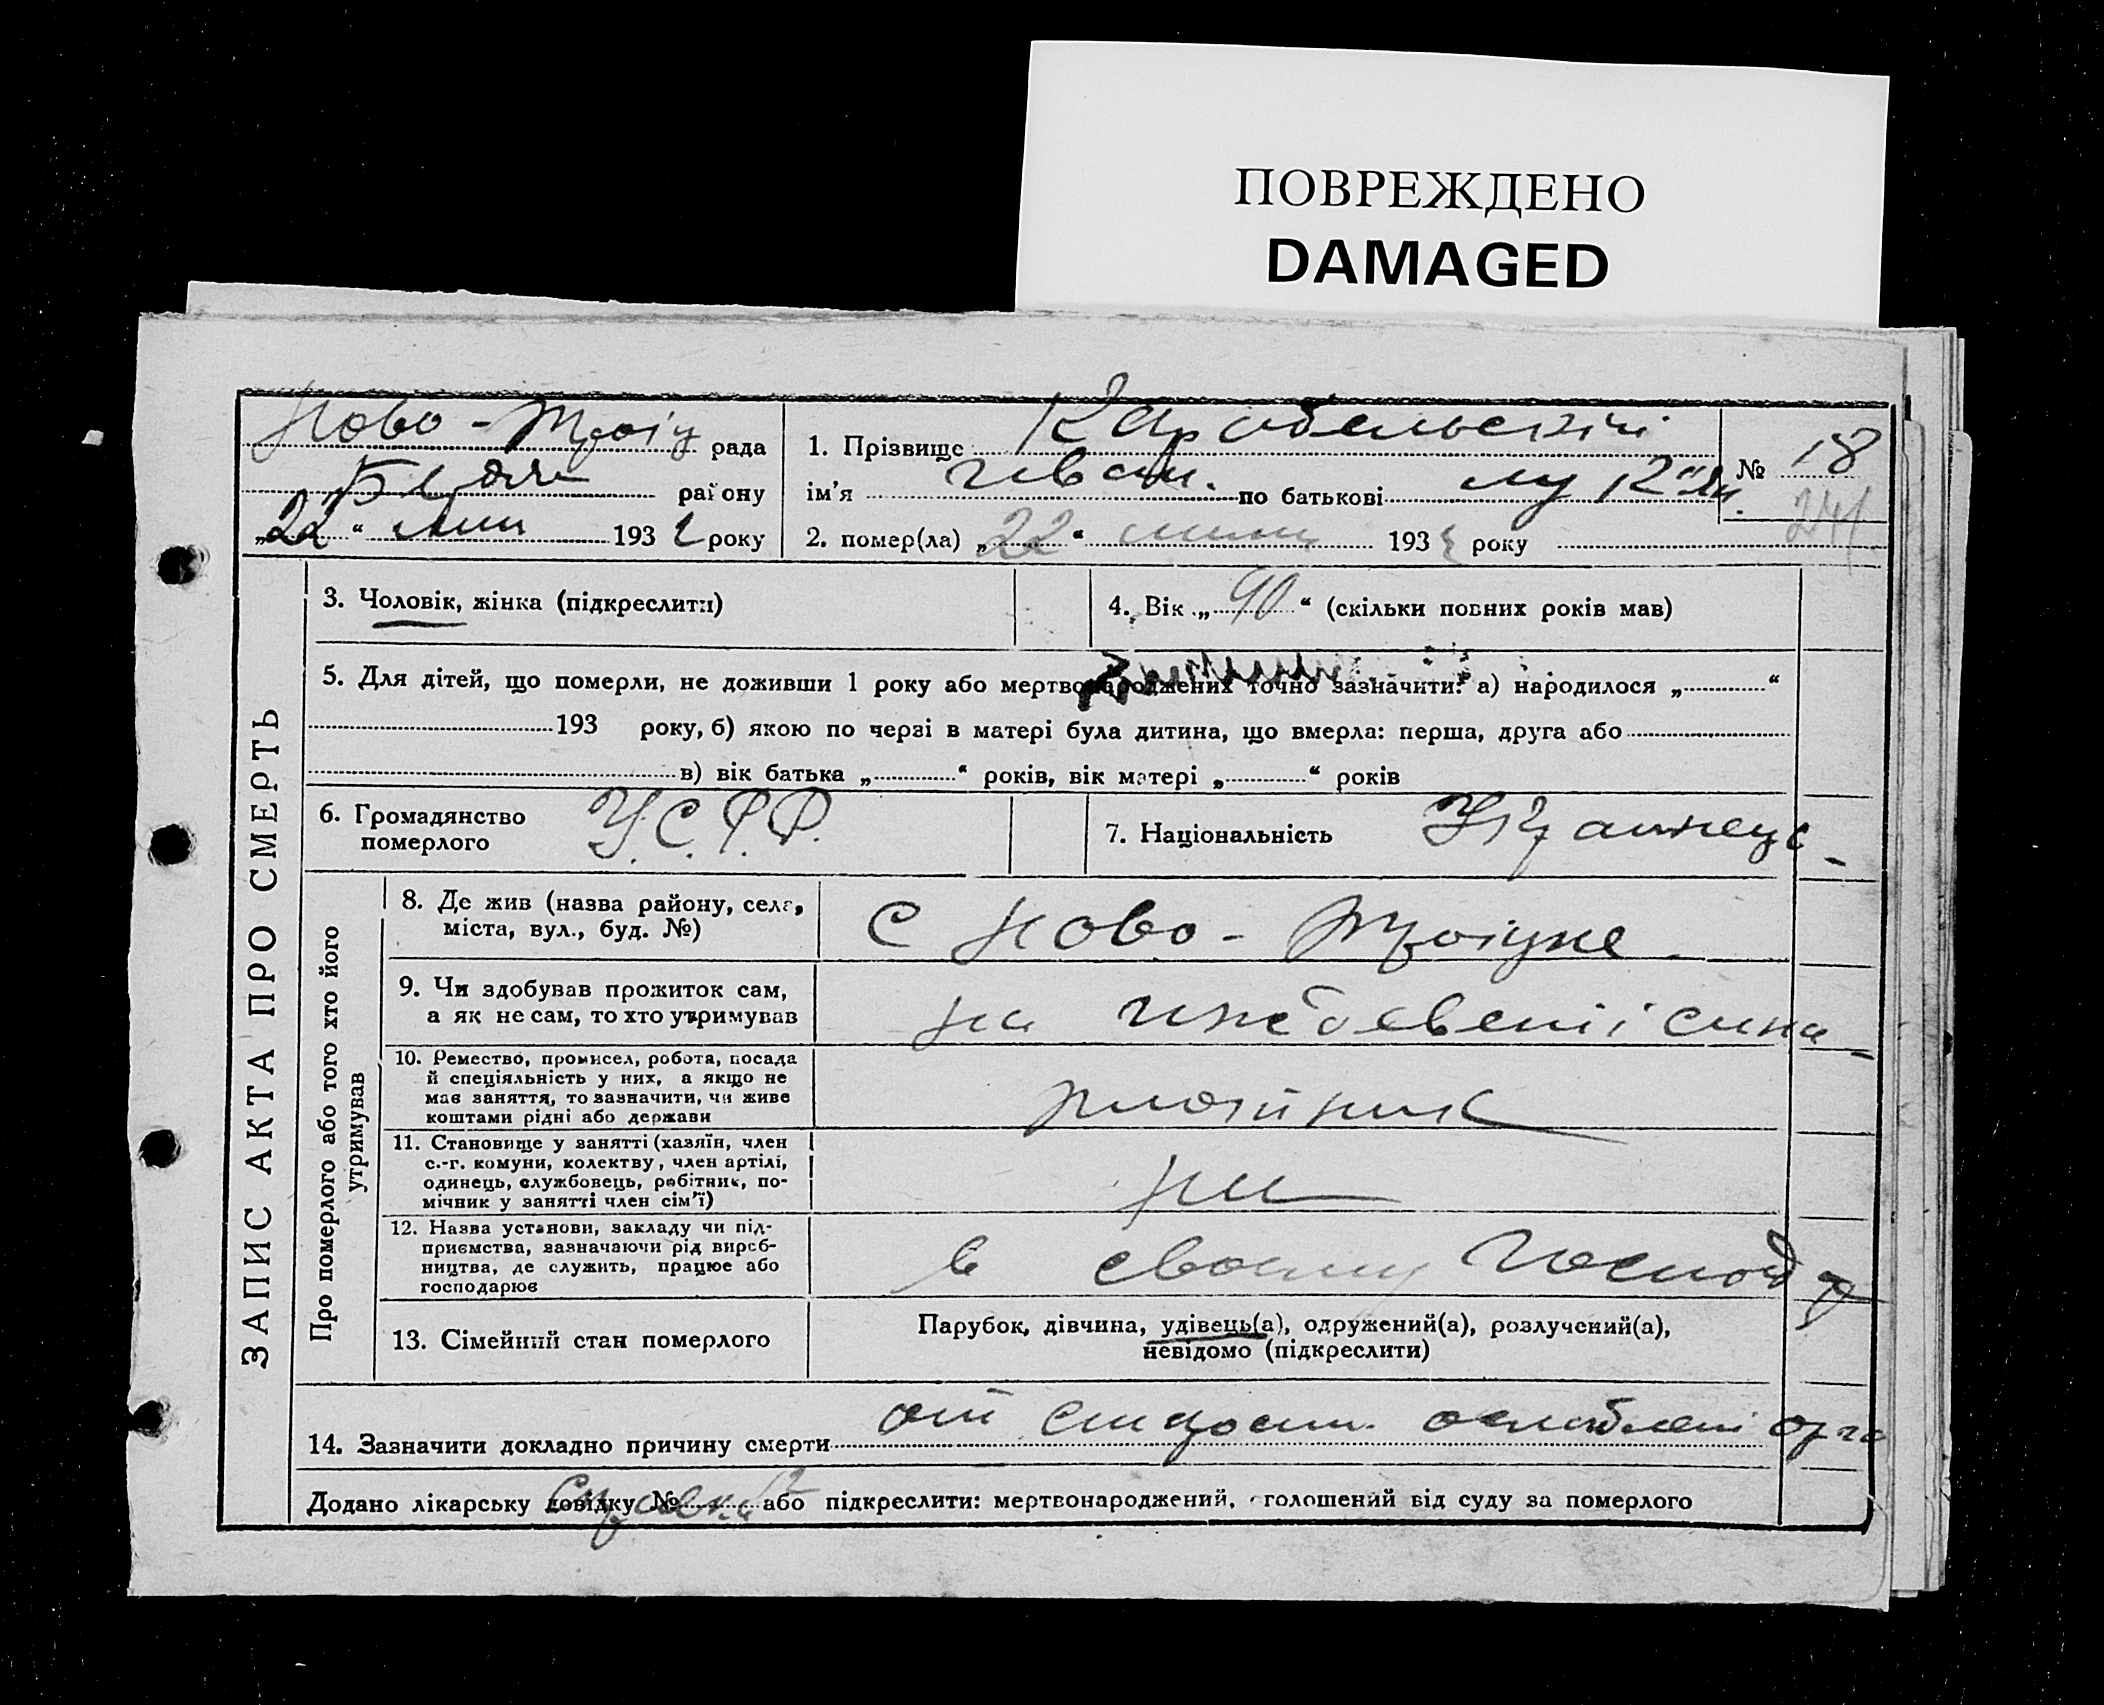 ПОВРЕЖДЕНО
DAMAGED
Ново-Троіц рада
району
„22“ 193 року
1. Прізвище Карабельскіи
ім’я Иван. по батькові
2. помер(ла) „22“ 193 року
№ 18
241
ЗАПИС АКТА ПРО СМЕРТЬ
3. Чоловік, жінка (підкреслити)
4. Вік „90“ (скільки повних років мав)
5. Для дітей, що померли, не доживши 1 року або мертвонароджених точно зазначити: а) народилося „ “
193 року, б) якою по черзі в матері була дитина, що вмерла: перша, друга або
в) вік батька „ “ років, вік матері „ “ років
6. Громадянство
померлого У.С.Р.Р.
7. Національність Українець
Про померлого або того хто його
утримував
8. Де жив (назва району, села,
міста, вул., буд. №)
С Ново-Троіцке
9. Чи здобував прожиток сам,
а як не сам, то хто утримував
на иждевенії сина
10. Ремество, промисел, робота, посада
й спеціяльність у них, а якщо не
має заняття, то зазначити, чи живе
коштами рідні або держави
11. Становище у занятті (хазяїн, член
с.-г. комуни, колектву, член артілі,
одинець, службовець, робітник, по-
мічник у занятті член сім’ї)
12. Назва установи, закладу чи під-
приємства, зазначаючи рід вироб-
ництва, де служить, працює або
господарює
в своему господ
13. Сімейний стан померлого
Парубок, дівчина, удівець(а), одружений(а), розлучений(а),
невідомо (підкреслити)
14. Зазначити докладно причину смерти от старости ослаблені орга
Додано лікарську довідку № або підкреслити: мертвонароджений, оголошений від суду за померлого